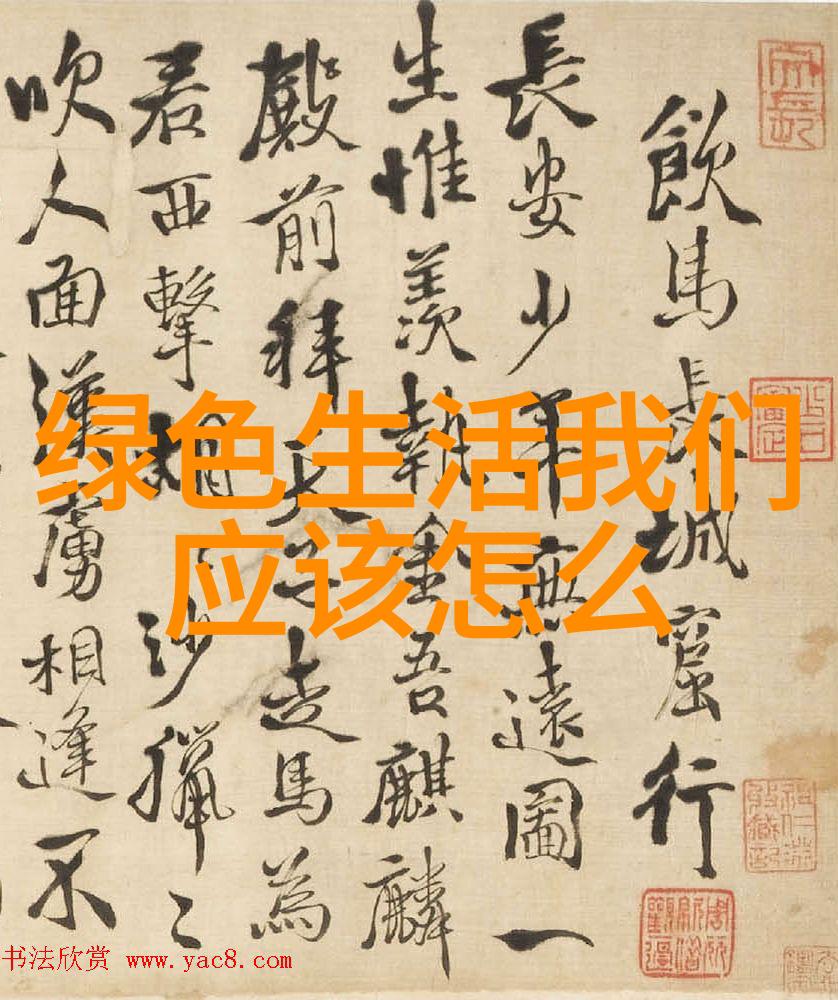 飲馬長城窟行
長安少年無遠圖一
生惟羨執金吾麒麟
殿前拜天子走馬為
君西擊胡〻沙獵〻
吹人面漢虜相逢不
绿色生活我们
应该怎么
书法欣赏 www.yac8.com